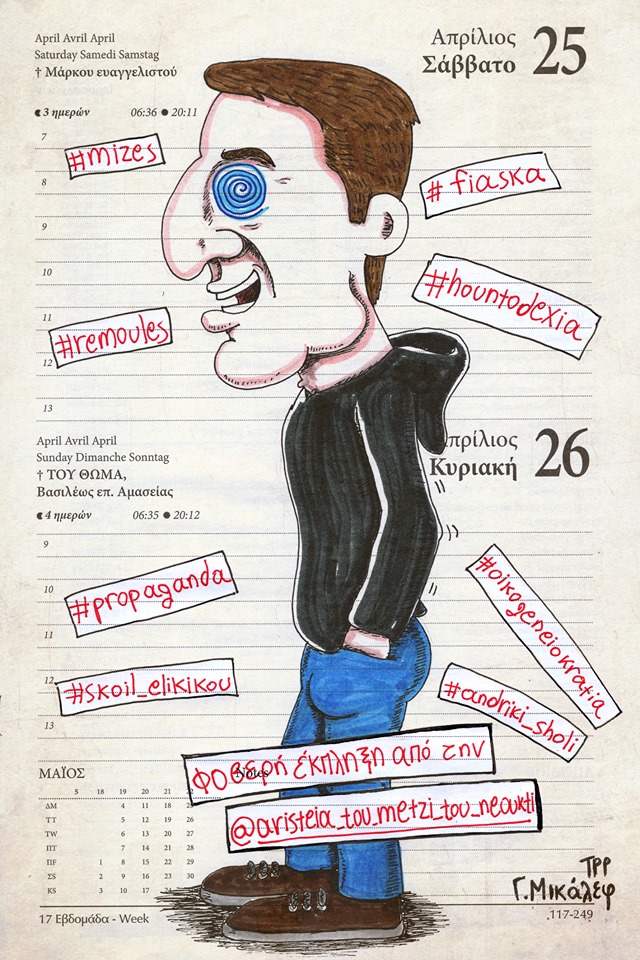 April Avril April
Saturday Samedi Samstag
† Μάρκου ευαγγελιστού
Απρίλιος
Σάββατο
25
3 ημερών 06:36 ● 20:11
7
#mizes
8
# fiaska
9
10
#hountodexia
11
#remoules
12
13
April Avril April
Sunday Dimanche Sonntag
† ΤΟΥ ΘΩΜΑ,
Βασιλέως επ. Αμασείας
πρίλιος
Κυριακή
26
4 ημερών 06:35 ● 20:12
9
#oikogeneiokratia
10
#propaganda
11
12
#skoil_elikikou
#andriki_sholi
13
Φοβερή έκπληξη από την
@aristeia_tou_metzi_tou_neoukti
ΜΑΪΟΣ
18 19 20 21
ΔΜ 4 11 18 25
ΤΤ 5 12 19 26
TW 6 13 20 27
ΠΤ 7 14 21 28
ΠF 1 8 15 22 29
ΣS 2 9 16 23 30
KS 3 10 17 24
17 Εβδομάδα - Week
Γ.Μικάλεφ
117-249